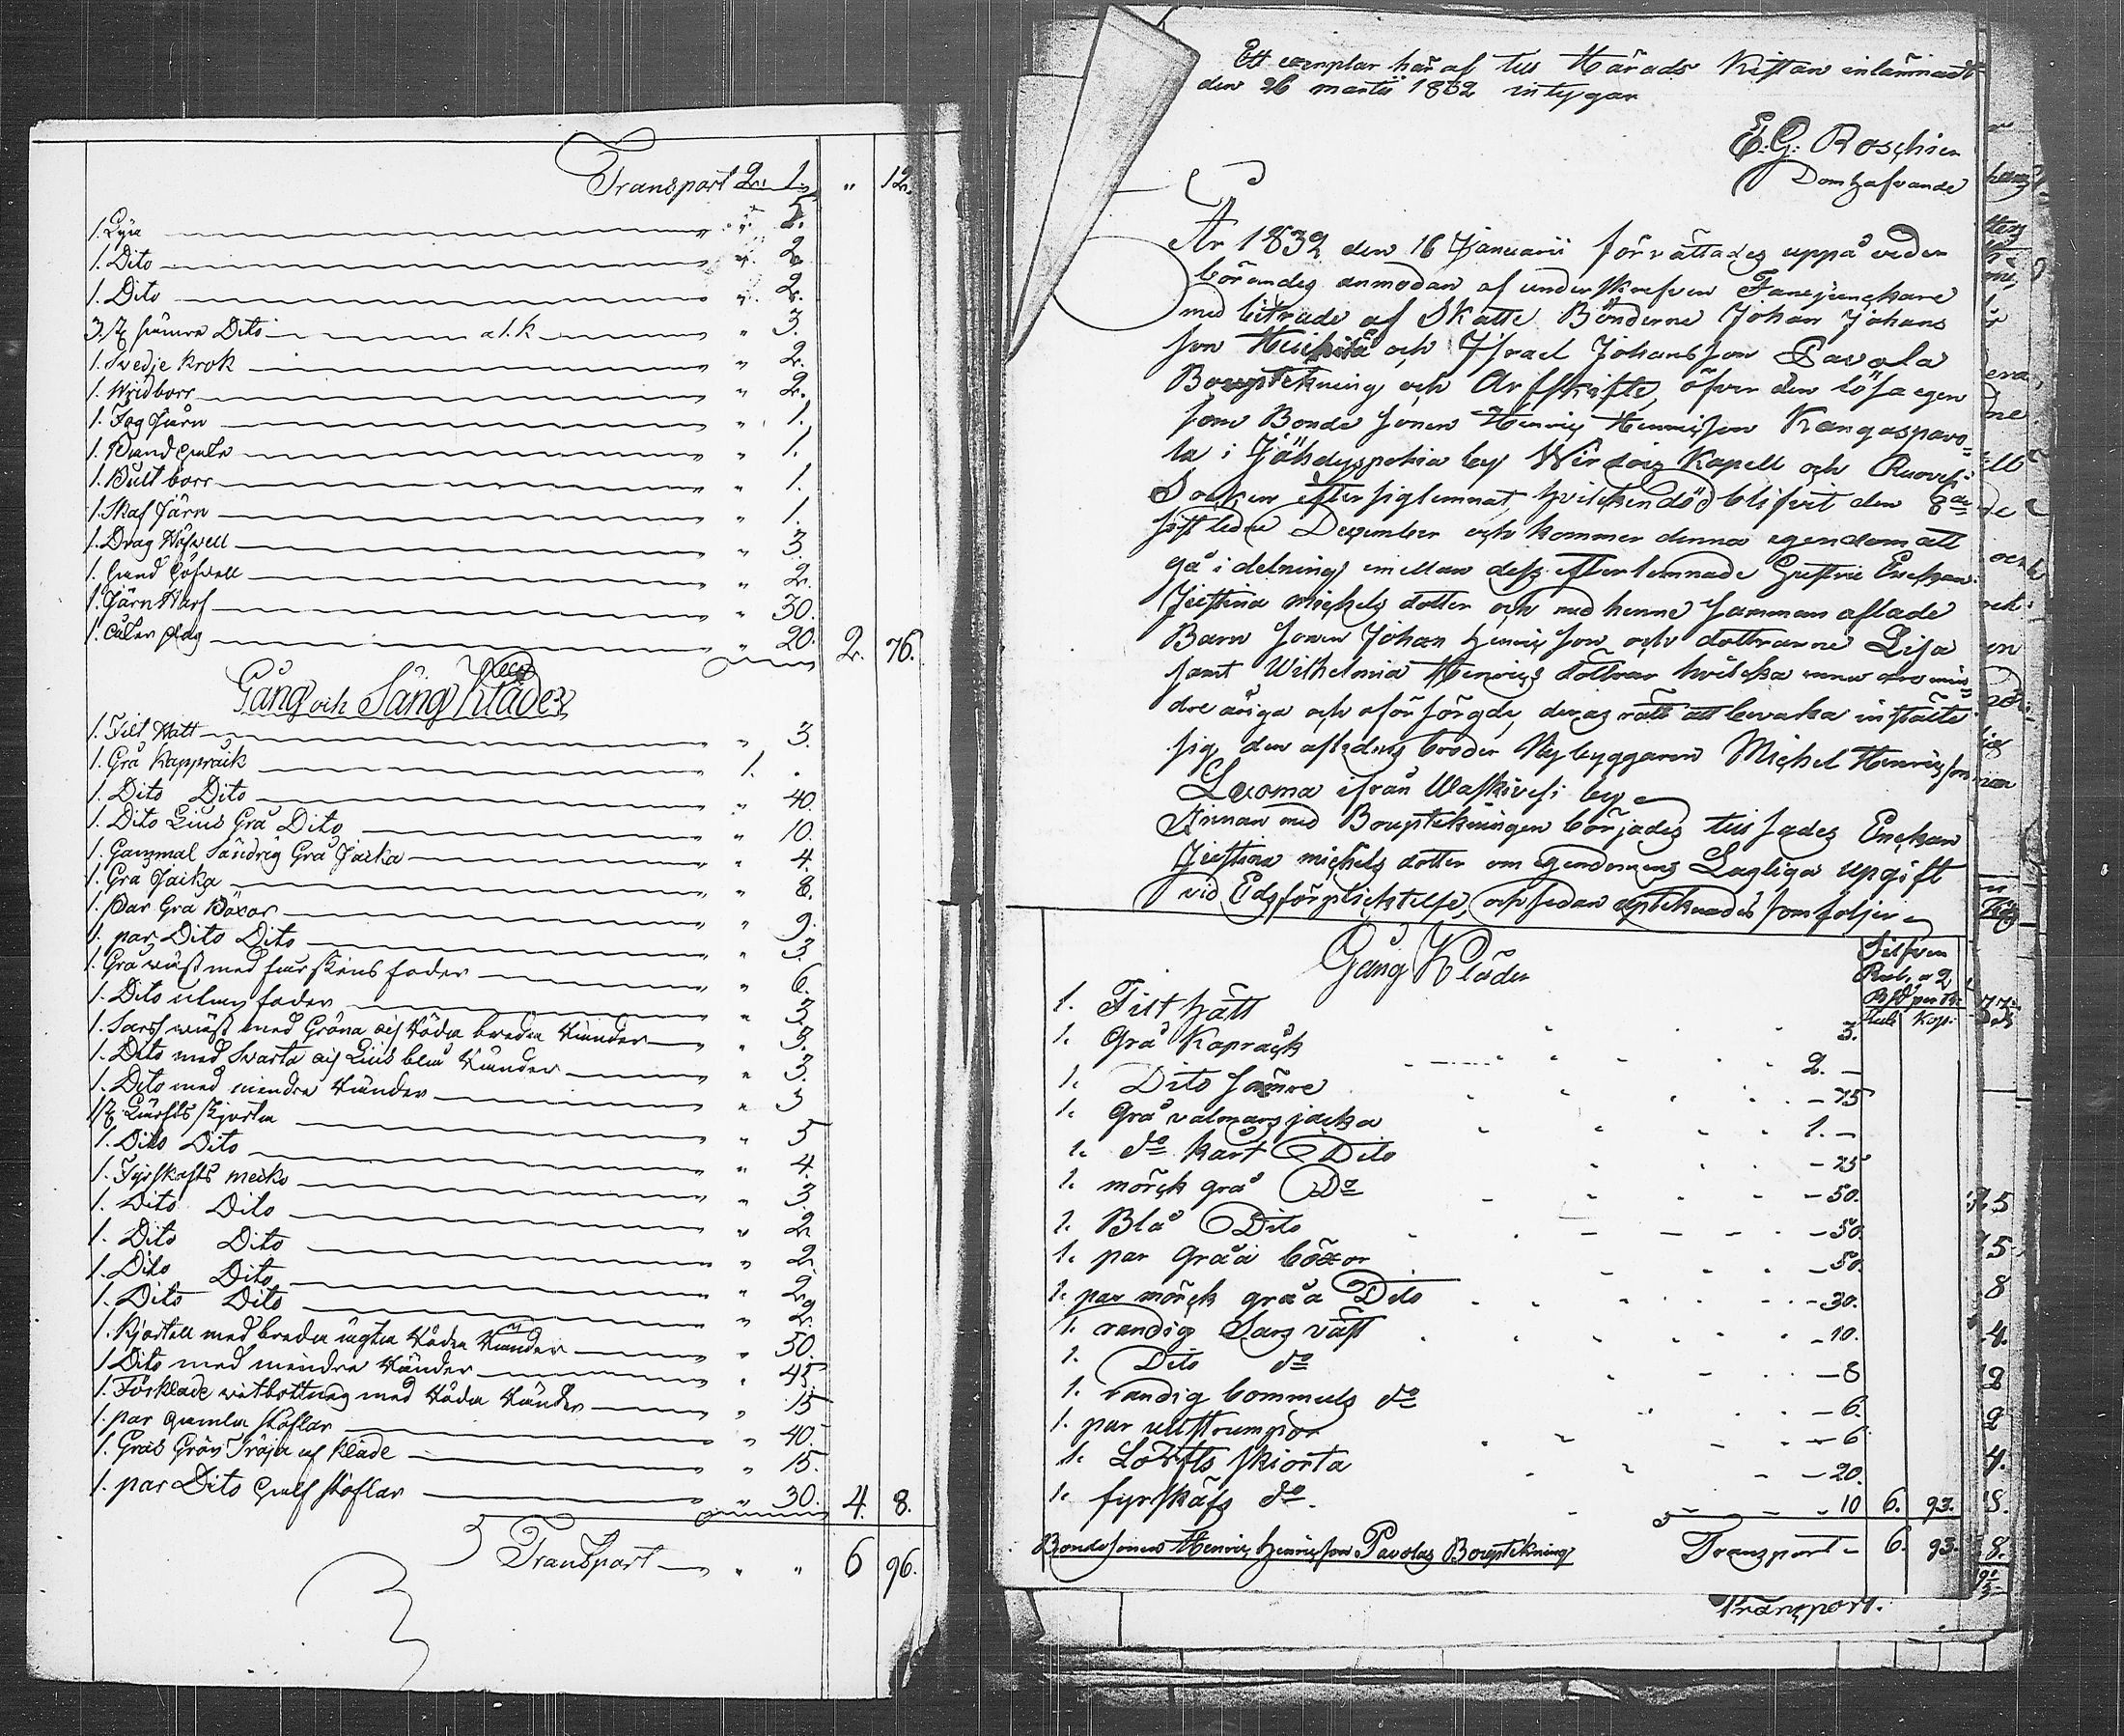 Transport 2. 1. " 12.
1. Lya " 5.
1. Dito " 2.
1. Dito " 2.
3. st sämre Dito a 1. k " 3.
1. Svedje krok " 2.
1. Wridborr " 2.
1. Fog Järn " 1.
1. " 1.
1. Bult borr " 1.
1. Skaf Järn " 1.
1. Drag Höfvell " 3.
1. höfvell " 2.
1. Järn Harf " 30.
1. Plog " 20. 2. 76.
Gång och Säng Kläder
1. Filt Hatt " 3.
1. Grå Kappråck 1. "
1. Dito Dito " 40.
1. Dito Lius Grå Dito " 10.
1. Gammal Söndrig Grå Jacka " 4.
1. Grå Jacka " 8.
1. Par Grå Böxor " 9.
1. par Dito Dito " 3.
1. Grå wäst med fårskins foder " 6.
1. Dito utan foder " 3.
1. Sars wäst med Gröna och Röda breda Ränder " 3.
1. Dito med Svarta och Lius blå Ränder " 3.
1. Dito med mindre Ränder " 3
1 st Lärfts skjorta " 5
1. Dito Dito " 4.
1. Fyrskafts mecko " 3.
1. Dito Dito " 2.
1. Dito Dito " 2.
1. Dito Dito " 2.
1. Dito Dito " 2.
1. Kjortell med breda Röda Ränder " 50.
1 Dito med mindre Ränder " 45.
1. Förkläde witbottnag med Röda Ränder " 15
1. par gamla stöflar " 40.
1. Gräs Grön Tröja af kläde " 15.
1. par Dito half stöflar " 30. 4. 8.
Transport " " 6 96.
Ett exemplar här af till Härads Kistan inlämnadt
den 26 martii 1832 intygar
E. G. Roschier
Domhafvande
År 1832 den 16 Januarii förrättades uppå veder
börandes anmodan af underskrefven Fanejunckare
med biträde af Skatte Bönderne Johan Johans
son och Israel Johansson Pavola
Bouptekning och Arfskifte, öfver den lösa egen
som Bonde Sonen Henric Henricson Kangaspavo=
la i Jähdyspohia by Wirdois Kapell och Ruovesi
Socken efter sig lemnat, hvilcken död blifvit den 8de
sistledne December och kommer denna egendom att
gå i delning emellan dess efterlemnade Hustru Enckan
Justina Michels dotter och med henne samman aflade
Barn Sonen Johan Henricson och dottrarne Lisa
samt Wilhelmia Henrics dottrar hvilcka ännu äro min=
dre åriga och oförsörgde, deras rätt att bevaka instälte
sig den aflednes broder Nybyggaren Michel Henricsson
Luoma ifrån Waskivesi by
Innan med Bouptekningen börjades tillsades Enckan
Justina michels dotter om egendomens Lagliga upgift
vid Edsförplichtelse, och sedan uptecknades som följer
Gång Kläder
Silfver
Rub. a 2
Rub. Kop.
1. Filt hatt 3.
1. Grå Kapråck 2. –
1. Dito sämre – 75
1. Grå valmars jacka 1. –
1. do kårt Dito – 75
1. mörck grå Do – 50.
1. Blå Dito – 50.
1. par Gråa böxor – 50.
1. par mörck gråa Dito – 30.
1. randig Sars väst – 10.
1. Dito do – 8
1. randig bommuls do – 6.
1. par ullstrumpor – 6
1. Lärfts skiorta – 20.
1. fyrskafs do. – 10 6. 93.
Bondesonens Henric Henricson Pavolas Bouptekning
Transport – 6. 93.
Transport.